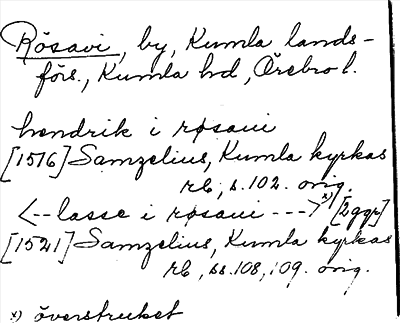 Rösavi, by, Kumla lands-
förs., Kumla hd, Örebro l.
hendrik i røsaui
[1516] Samzelius, Kumla kyrkas
rb, s. 102. orig.
<--lasse i røsaui ---> x) [2ggr]
[1521] Samzelius, Kumla kyrkas
rb, ss. 108, 109. orig.
x) överstruket